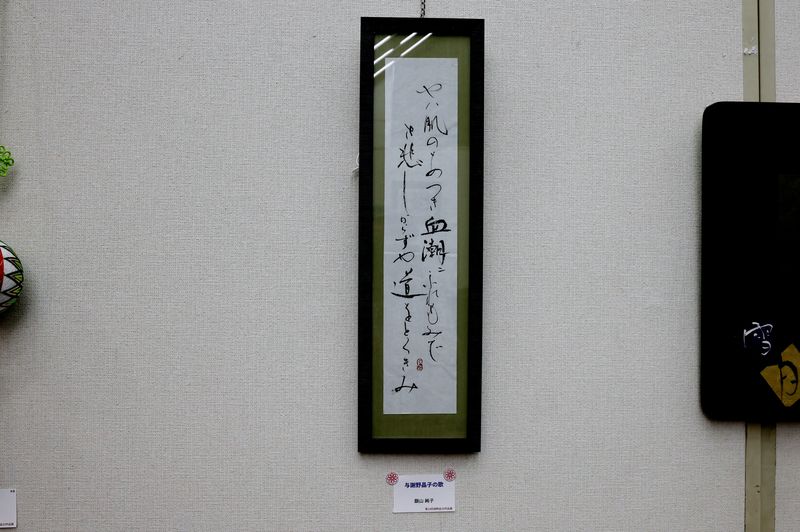 やは肌のあつき血潮にふれもみで
さ悲しからずや道をとくきみ
与謝野晶子の歌
飯山 純子
雪
月